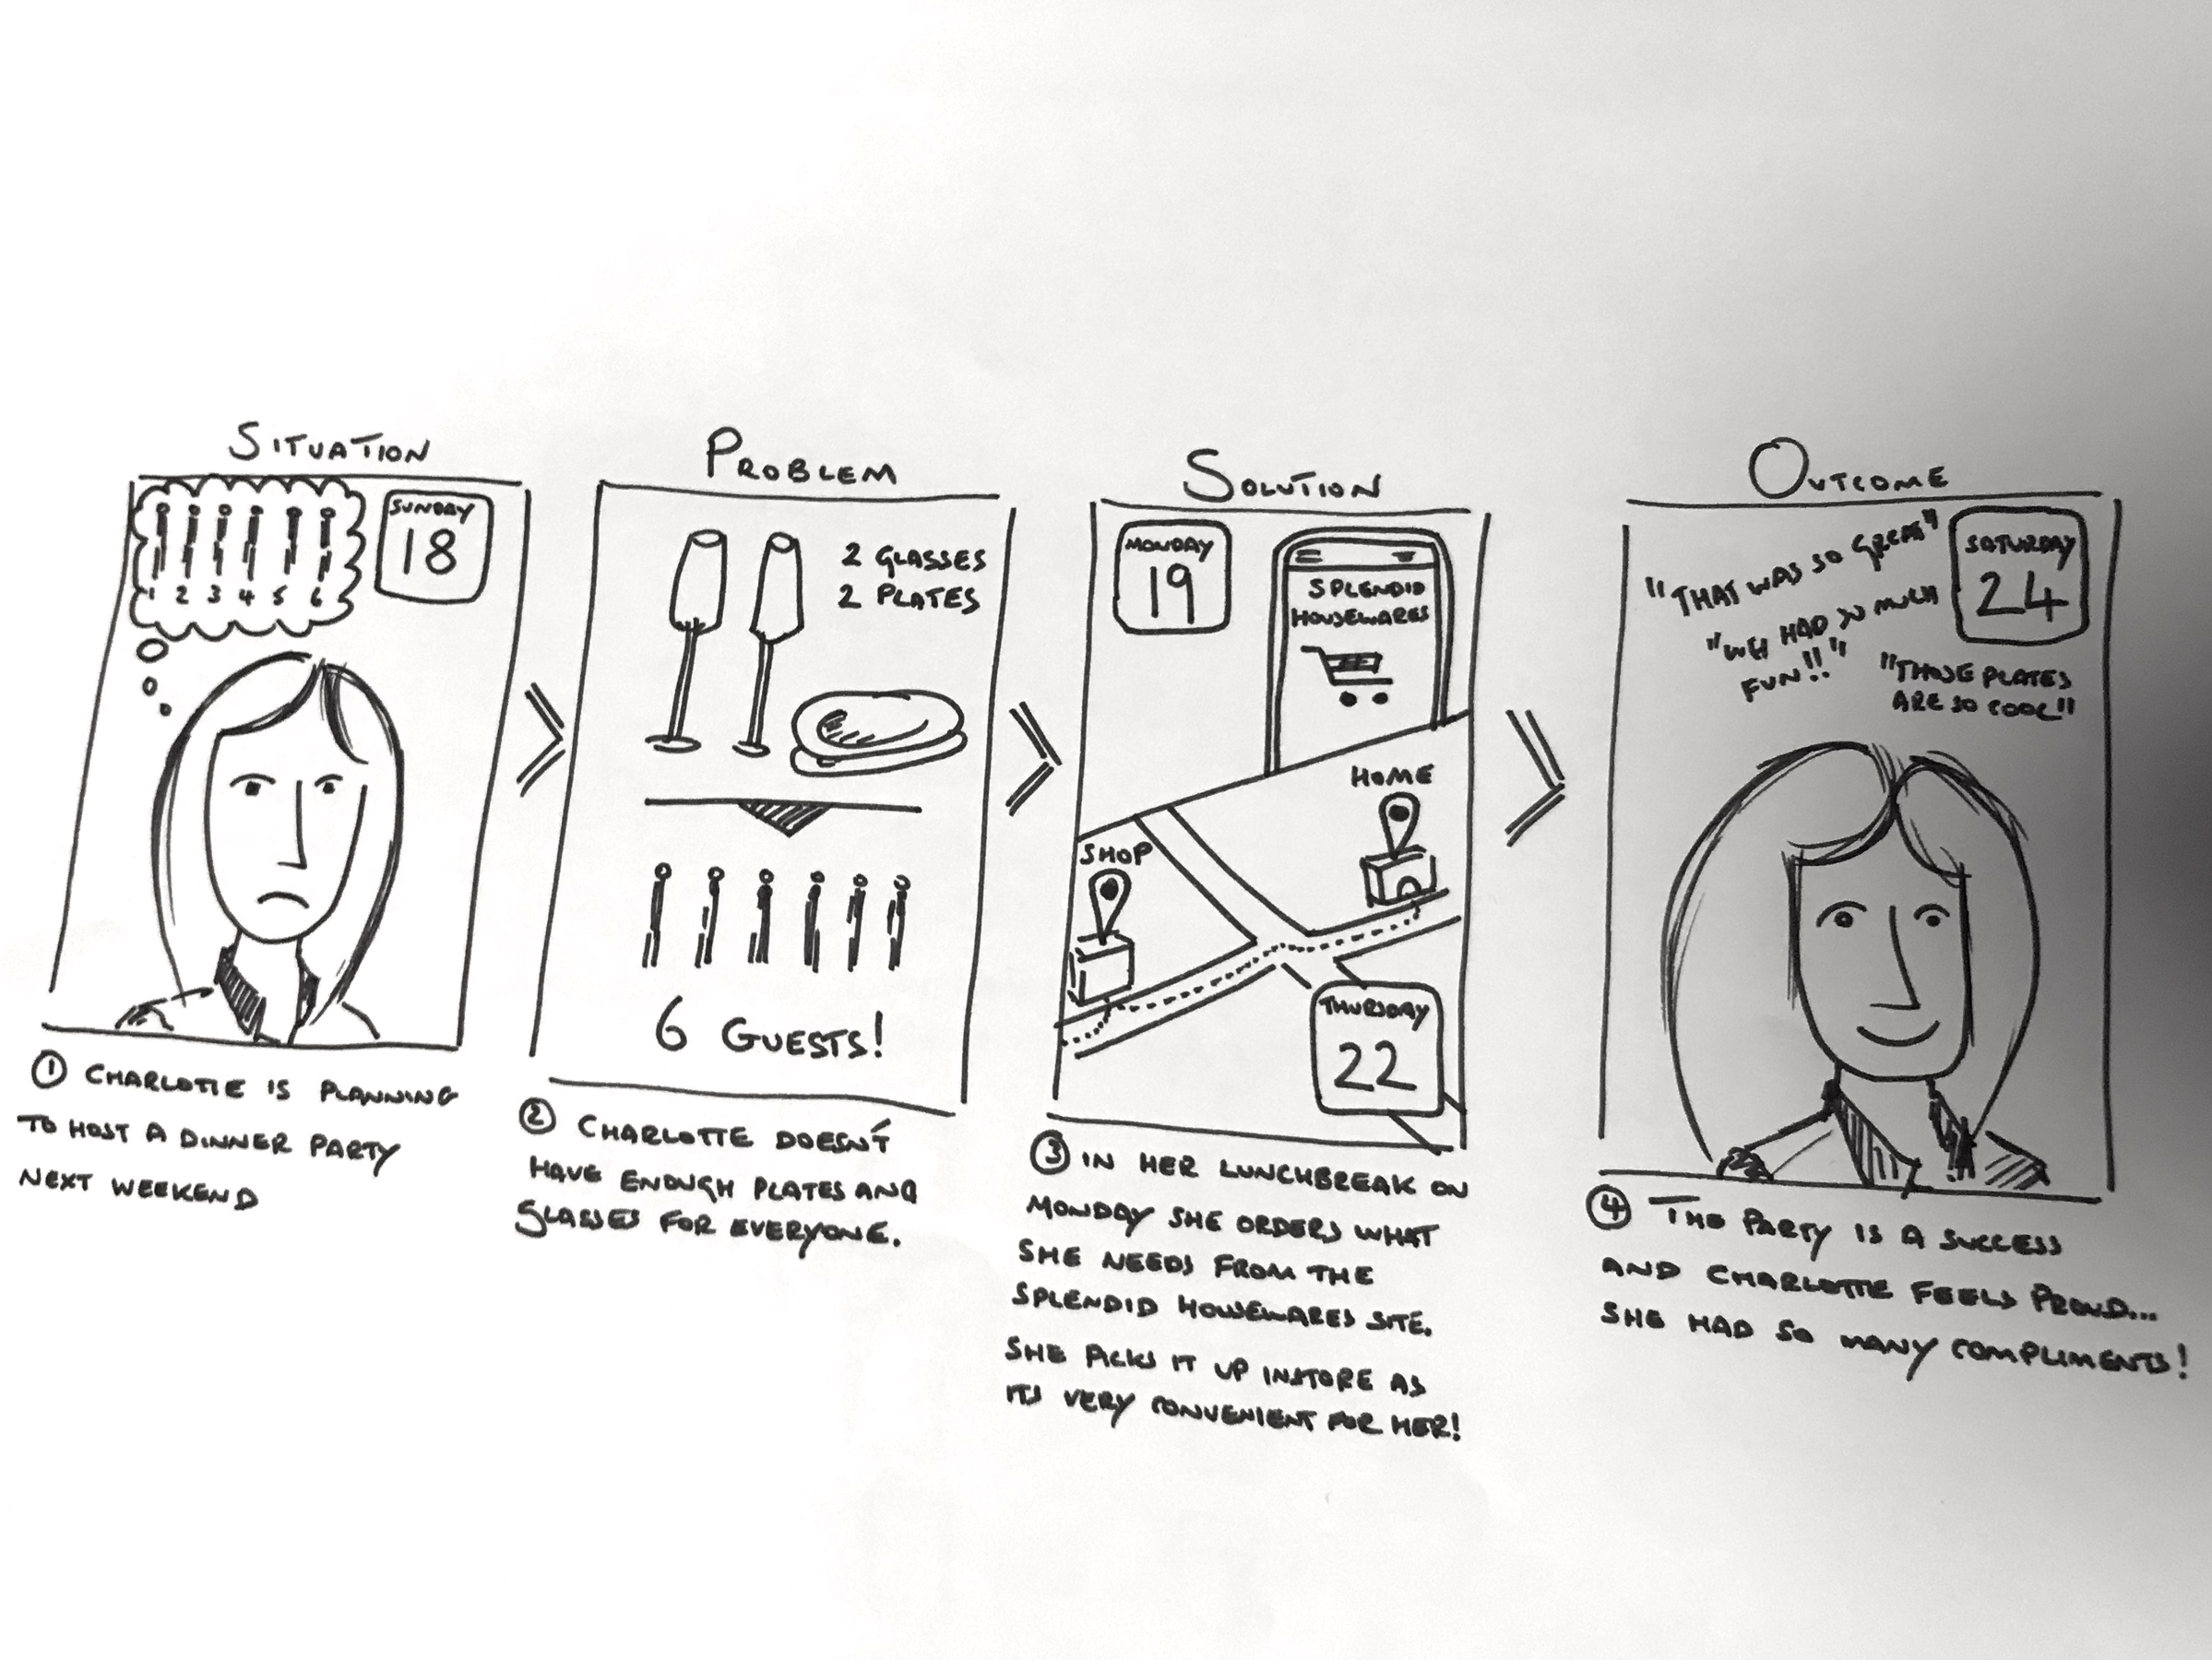 SITUATION
SUNDAY
18
1 2 3 4 5 6
① CHARLOTTE IS PLANNING
TO HOST A DINNER PARTY
NEXT WEEKEND
PROBLEM
2 GLASSES
2 PLATES
6 GUESTS!
② CHARLOTTE DOESN'T
HAVE ENOUGH PLATES AND
GLASSES FOR EVERYONE.
SOLUTION
MONDAY
19
SPLENDID
HOUSEWARES
HOME
SHOP
THURSDAY
22
③ IN HER LUNCHBREAK ON
MONDAY SHE ORDERS WHAT
SHE NEEDS FROM THE
SPLENDID HOUSEWARES SITE.
SHE PICKS IT UP INSTORE AS
ITS VERY CONVENIENT FOR HER!
OUTCOME
"THAT WAS SO GREAT"
SATURDAY
24
"WE HAD SO MUCH
FUN!!"
"THOSE PLATES
ARE SO COOL"
④ THE PARTY IS A SUCCESS
AND CHARLOTTE FEELS PROUD...
SHE HAD SO MANY COMPLIMENTS!